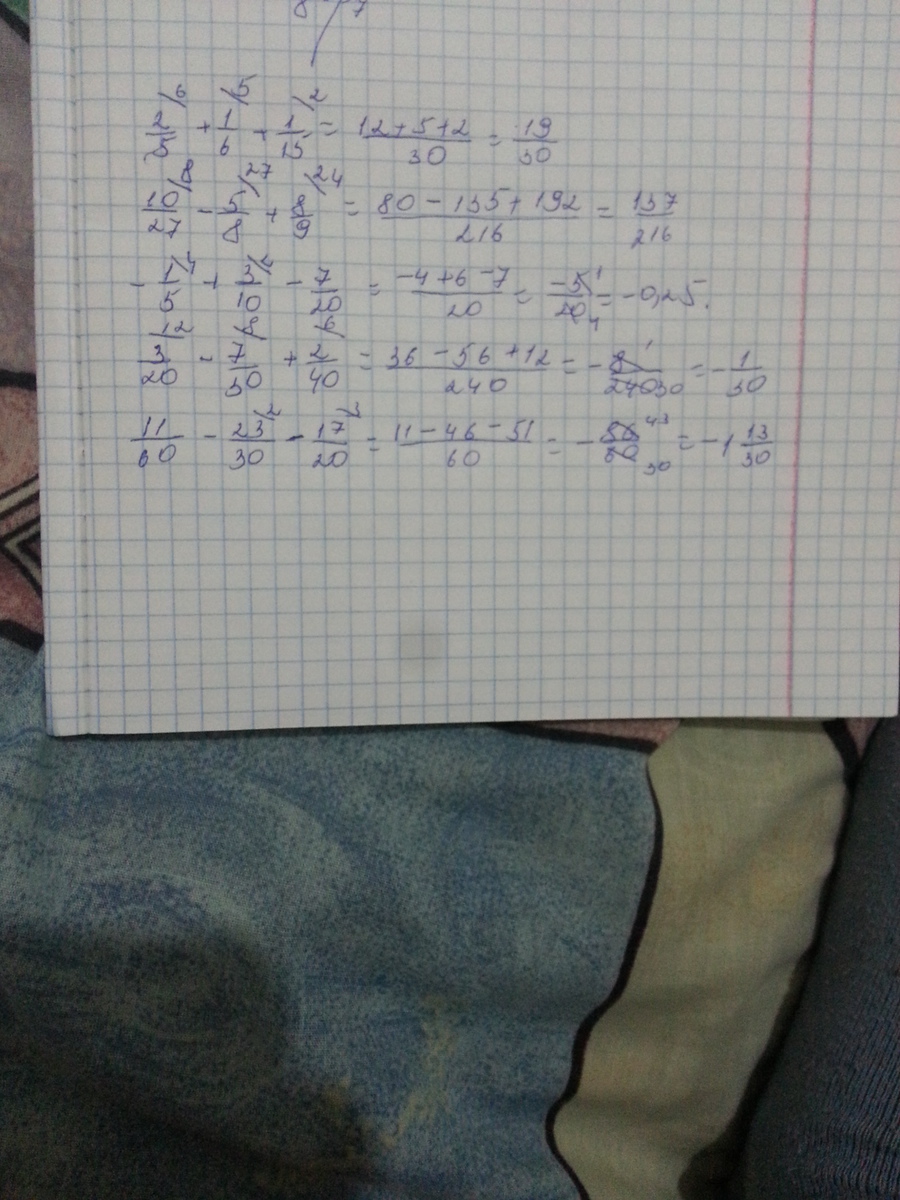 8 7
2/5 /6 + 1/6 /5 + 1/15 /2 = (12+5+2)/30 = 19/30
10/27 /8 - 5/8 /27 + 8/9 /24 = (80-135+192)/216 = 137/216
- 1/5 /4 + 3/10 /2 - 7/20 = (-4+6-7)/20 = -5/20 1 4 = -0,25.
3/20 /12 - 7/30 /8 + 2/40 /6 = (36-56+12)/240 = - 8/240 1 30 = - 1/30
11/60 - 23/30 /2 - 17/20 /3 = (11-46-51)/60 = - 86/60 43 30 = -1 13/30